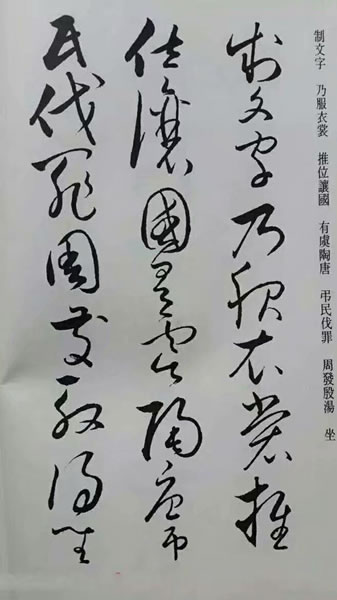 制文字 乃服衣裳 推位讓國 有虞陶唐 弔民伐罪 周發殷湯 坐
制文字乃服衣裳推
位讓國有虞陶唐弔
民伐罪周發殷湯坐